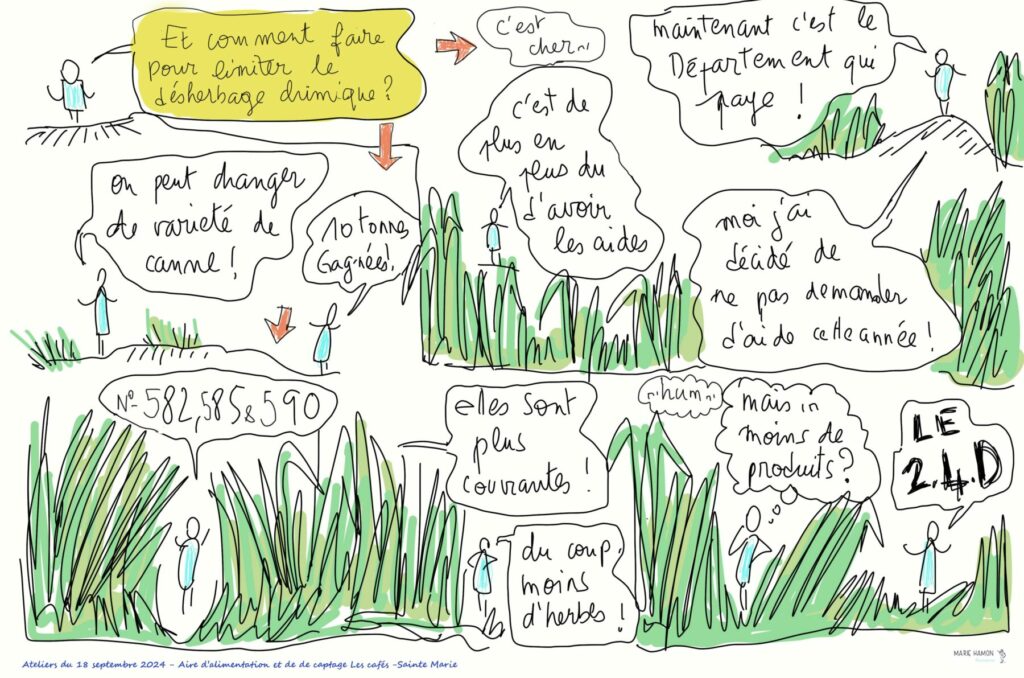 Et comment faire
pour limiter le
désherbage chimique ?
c'est
cher...
c'est de
plus en
plus du
d'avoir
les aides
maintenant c'est le
Département qui
paye !
moi j'ai
décidé de
ne pas demander
d'aide cette année !
on peut changer
de varieté de
canne !
10 tonnes
Gagnées !
N° 582, 585 & 590
elles sont
plus
couvrantes !
du coup,
moins
d'herbes !
hum
mais...
moins de
produits ?
LE
2.4.D
Ateliers du 18 septembre 2024 - Aire d'alimentation et de de captage Les cafés -Sainte Marie
MARIE HAMON